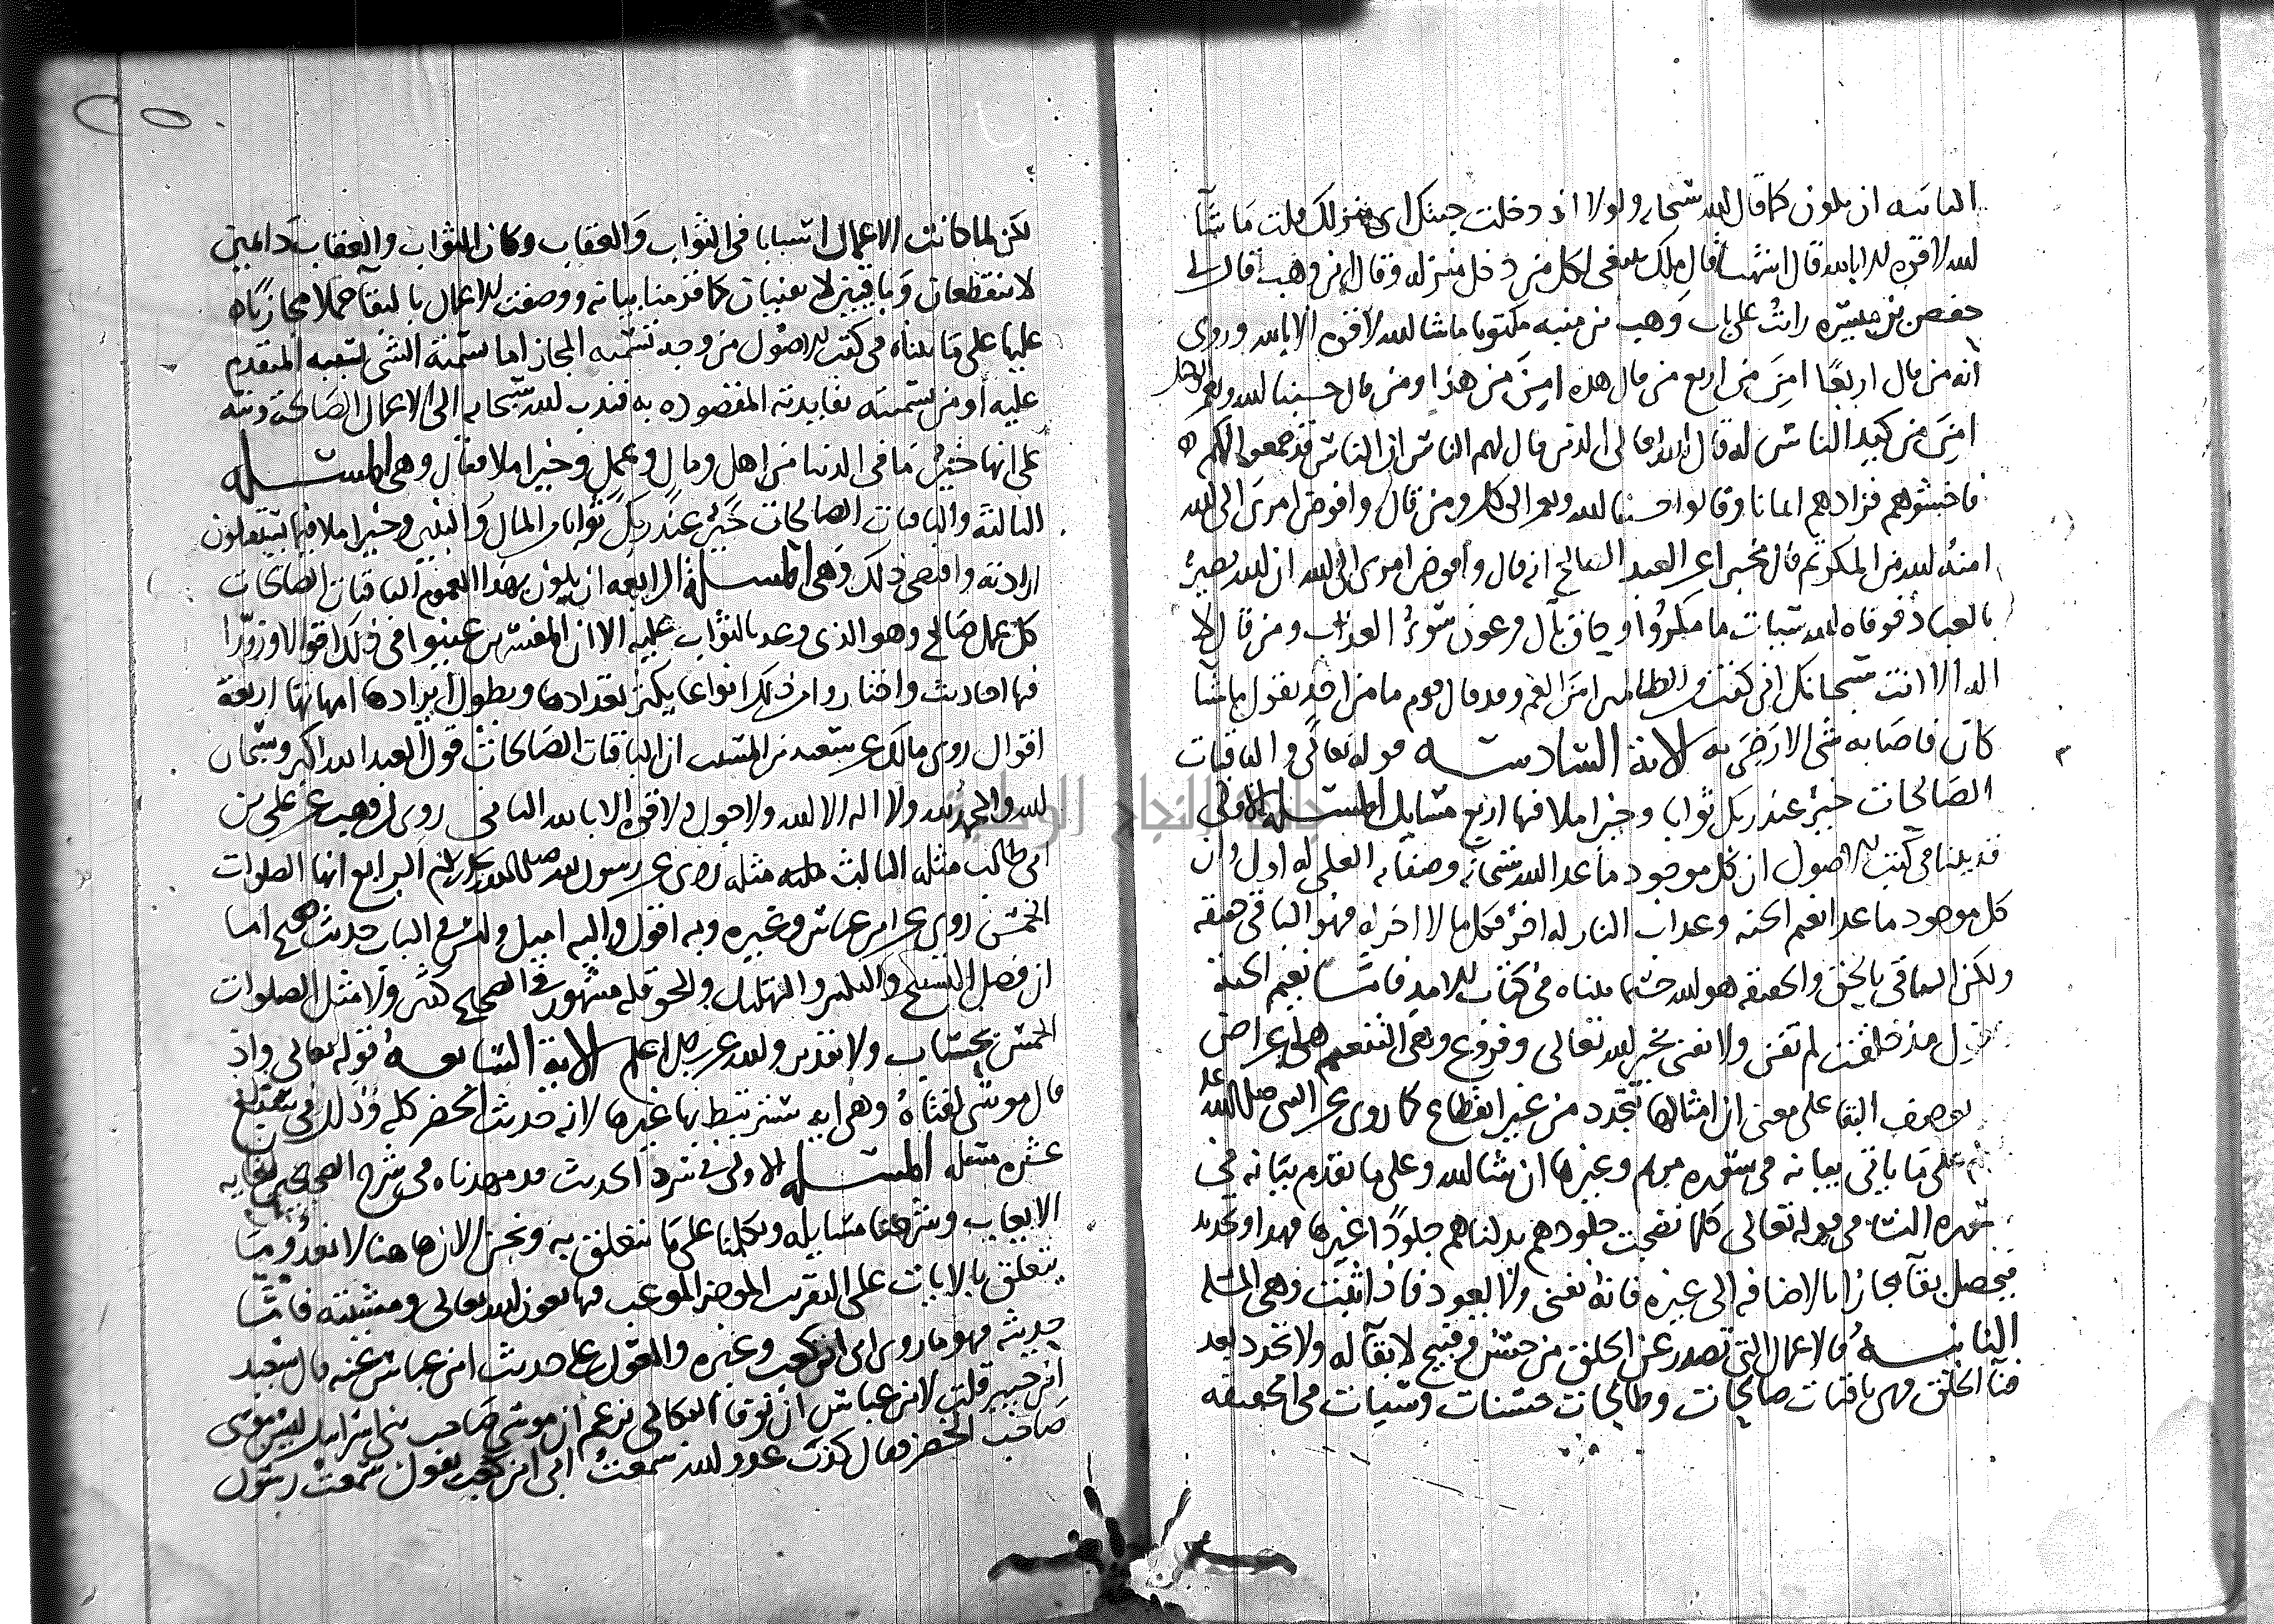 الثانية ان يكون كما قال الله سبحانه ولولا اذ دخلت جنتك اي منزلك قلت ما شآ
الله لا قوه الا بالله قال اشهب قال ملك ينبغي لكل من دخل منزله وقال ابن وهب قال لي
حفص بن ميسره رايت على باب وهب بن منبه مكتوبا ما شا الله لا قوه الا بالله وروي
انه من قال اربعًا امن من اربع من قال هذه امن من هذا ومن قال حسبنا الله ونعم الوكيل
امن من كيد الناس له قال الله تعالى الذين قال لهم الناس ان الناس قد جمعوا لكم
فاخشوهم فزادهم ايمانا وقالوا حسبنا الله ونعم الوكيل ومن قال وافوض امري الى الله
امنه الله من المكر ثم قال مخبرا عن العبد الصالح انه قال وأفوض امري الى الله ان الله بصير
بالعباد فوقاه الله سيات ما مكروا وحاق بآل فرعون سوء العذاب ومن قال لا
اله الا انت سبحانك اني كنت من الظالمين امن الغم وقد قال قوم ما من احد يقول ما شا الله
كان فاصابه شي الا رضي به الاية السادسه قوله تعالى والباقيات
الصالحات خير عند ربك ثوابا وخير املا فيها اربع مسايل المسله الاولى
قد بينا في كتب الاصول ان كل موجود ما عدا الله سبحانه وصفاته العلى له اول وان
كل موجود ما عدا نعيم الجنه وعذاب النار له اخر فكل ما لا اخر له فهو الباقي حقيقه
ولكن الباقي بالحق والحقيقه هو الله حسبما بيناه في كتاب الامد فاما نعيم الجنة
فاصول مذ خلقت لم تفن ولا تفنى بخبر الله تعالى وفروع وهي النعيم هي اعراض
توصف بالبقا على معنى ان امثالها تتجدد من غير انقطاع كما روي عن النبي صلى الله عليه
وسلم على ما ياتي بيانه في سوره مريم وغيرها ان شا الله وعلى ما تقدم بيانه في
سوره النسا في قوله تعالى كلما نضجت جلودهم بدلناهم جلودًا غيرها فهذا وتجديد
فيحصل بقآ مجازا بالاضافه الى غيره فانه يفنى ولا يعود فاذا ثبت وهي المسله
الثانيـــة فالاعمال التي تصدر عن الخلق من حسن وقبيح لا بقآ له ولا تجدد بعد
فنآ الخلق فهي باقيات صالحات وطالحات حسنات وسيات في الحقيقه
لكن لما كانت الاعمال اسبابا في الثواب والعقاب وكان الثواب والعقاب دآئمين
لا ينقطعان وباقيين لا يفنيان كما قدمنا بيانه ووصفت الاعمال بالبقآ حملا مجازيًا
عليها على ما بيناه في كتب الاصول من وجه تسميه المجاز اما تسمية الشي بسببه المتقدم
عليه أو من تسميته بفايدته المقصوده به فندب الله سبحانه الى الاعمال الصالحة ونبه
على انها خير ما في الدنيا من اهل ومال وعمل وخير املا فقال وهي المسله
الثالثه والباقيات الصالحات خير عند ربك ثوابا من المال والبنين وخير املا فيما يستقبلون
ارادته واقتضى ذلك وهي المسلة الرابعه ان يكون بهذا العموم الباقيات الصالحات
كل عمل صالح وهو الذي وعد بالثواب عليه الا ان المفسرين عينوا في ذلك اقوالا ورووا
فيها احاديث واختاروا من ذلك انواعا يكثر تعدادها ويطول ايرادها امهاتها اربعة
اقوال روى مالك عن سعيد بن المسيب ان الباقيات الصالحات قول العبد الله اكبر وسبحان
الله والحمد لله ولا اله الا الله ولا حول ولا قوه الا بالله الثاني روى ابن وهب عن علي بن
ابي طالب مثله الثالث مثله روي عن رسول الله صلى الله عليه وسلم الرابع انها الصلوات
الخمس روي عن ابن عباس وغيره وبه اقول واليه اميل وليس في الباب حديث صحيح اما
ان فضل التسبيح والتكبير والتهليل والحوقله مشهور في الصحيح كثير ولا مثل للصلوات
الخمس بحساب ولا تقدير والله عز وجل اعلم الاية السابعه قوله تعالى واذ
قال موسى لفتاه وهي ايه سترتبط بها غيرها لانه حديث الخضر كله وذلك في سبع
عشره مسله المسله الاولى في سرد الحديث قد مهدناه في شرح الصحيح بغايه
الايعاب وشرحنا مسايله وتكلمنا على ما يتعلق به ونحن الان ها هنا لا نعدو ما
يتعلق بالايات على التقريب الموجز الموعب فيها بعون الله تعالى ومشيئته فاما
حديثه فهو ما روى ابي ابن كعب وغيره والمعول على حديث ابن عباس عنه قال سعيد
ابن جبير قلت لابن عباس ان نوفا البكالي يزعم ان موسى صاحب بني اسرايل ليس موسى
صاحب الخضر فقال كذب عدو الله سمعت ابي ابن كعب يقول سمعت رسول
جامعة النجاح الوطنية